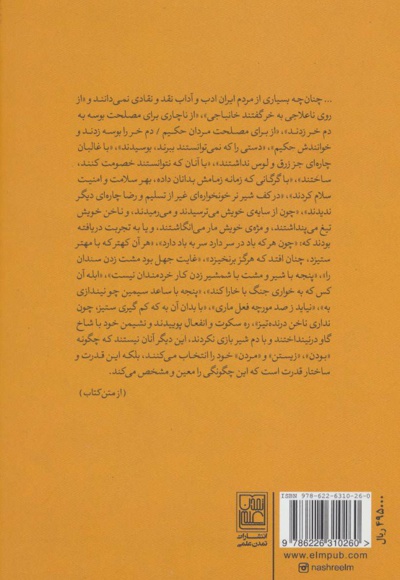 ... چنان‌چه بسیاری از مردم ایران ادب و آداب نقد و نقادی نمی‌دانند و «از
روی ناعلاجی به خر گفتند خانباجی»، «از ناچاری برای مصلحت بوسه به
دم خر زدند»، «از برای مصلحت مردان حکیم / دم خر را بوسه زدند و
خوانندش حکیم»، «دستی را که نمی‌توانستند ببرند، بوسیدند»، «با غالبان
چاره‌ای جز زرق و لوس نداشتند»، «با آنان که نتوانستند خصومت کنند،
ساختند»، «با گرگانی که زمانه زمامش بدانان داده، بهر سلامت و امنیت
سلام کردند»، «در کف شیر نر خونخواره‌ای غیر از تسلیم و رضا چاره‌ای دیگر
ندیدند»، «چون از سایه‌ی خویش می‌ترسیدند و می‌رمیدند، و ناخن خویش
تیغ می‌پنداشتند، و مژه‌ی خویش مار می‌انگاشتند، و یا به تجربت دریافته
بودند که: «چون هر که باد در سر دارد سر به باد دارد»، «هر آن کهتر که با مهتر
ستیزد، چنان افتد که هرگز برنخیزد»، «غایت جهل بود مشت زدن سندان
را»، «پنجه با شیر و مشت با شمشیر زدن کار خردمندان نیست»، «ابله آن
کس که به خواری جنگ با خارا کند»، «پنجه با ساعد سیمین چو نیندازی
به»، «نیاید ز صد مورچه فعل ماری»، «با بدان آن به که کم گیری ستیز، چون
نداری ناخن درنده‌تیز»، ره سکوت و انفعال پوییدند و نشیمن خود با شاخ
گاو درنینداختند و با دم شیر بازی نکردند، این دیگر آنان نیستند که چگونه
«بودن»، «زیستن» و «مردن» خود را انتخاب می‌کنند، بلکه این قدرت و
ساختار قدرت است که این چگونگی را معین و مشخص می‌کند.
(از متن کتاب)
ISBN: 978-622-6310-26-0
9 786226 310260
۴۹۵۰۰۰ ریال
تمدن
علمی
انتشارات
تمدن علمی
www.elmpub.com
nashreelm